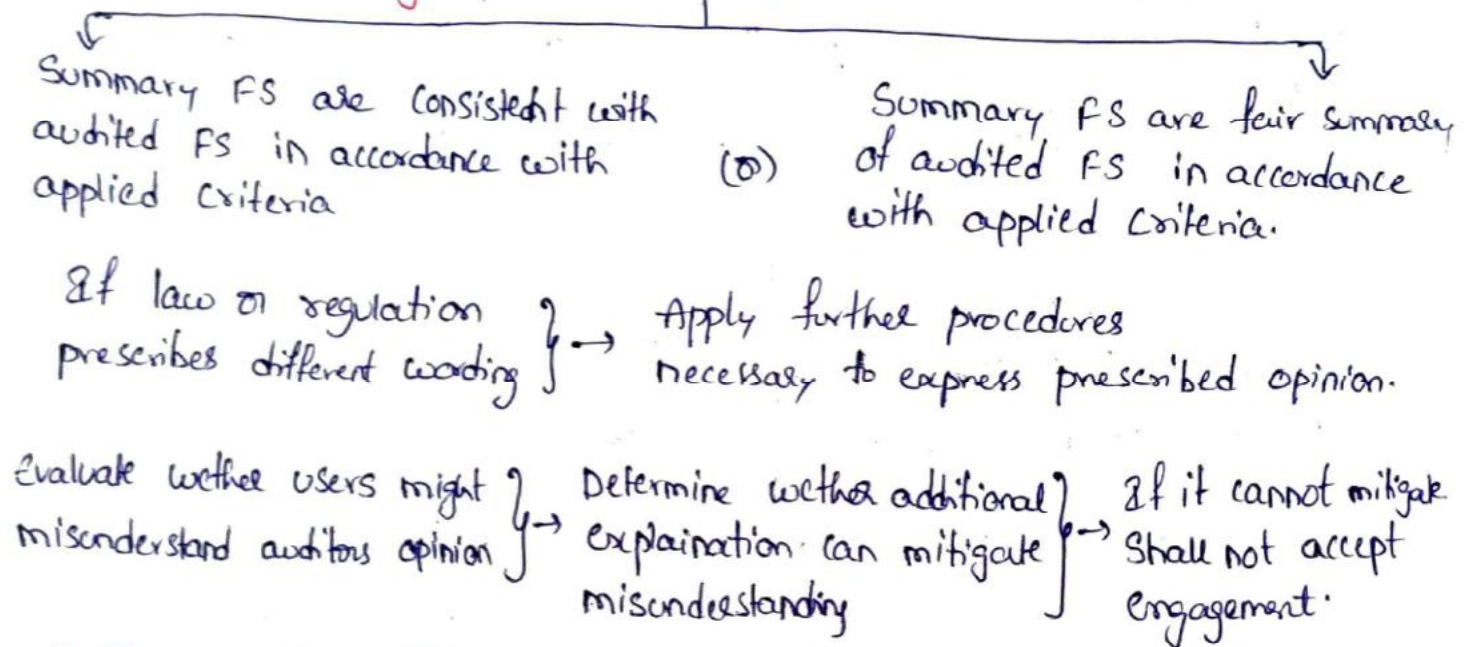 Summary FS are Consistent with
audited FS in accordance with
applied Criteria
(or)
Summary FS are fair summary
of audited FS in accordance
with applied Criteria.
If law or regulation
prescribes different wording
→ Apply further procedures
necessary to express prescribed opinion.
Evaluate wether users might
misunderstand auditors opinion
→ Determine wether additional
explaination can mitigate
misunderstanding
→ If it cannot mitigate
Shall not accept
engagement.